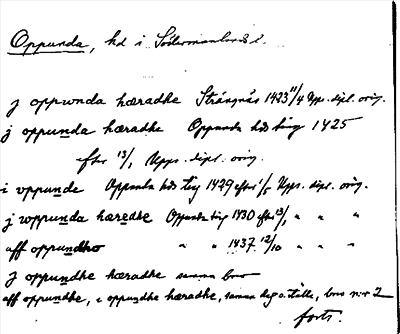 Oppunda, hd i Södermanlands l.
j oppwnda hæradhe Strängnäs 1423 11/4 Upps. dipl. orig.
j oppunda hæradhe Oppunda hds ting 1425
efter 13/1 Upps. dipl. orig.
i vppunde Oppunda hds ting 1429 efter 1/5 Upps. dipl. orig.
j woppunda hæredhe Oppunda ting 1430 efter 13/1 " " "
aff oppundho " " 1437 12/10 " " "
j oppundhe hæradhe samma brev
aff oppundhe, i oppundhe hæradhe, samma dag o. ställe, brev nr 2
forts.